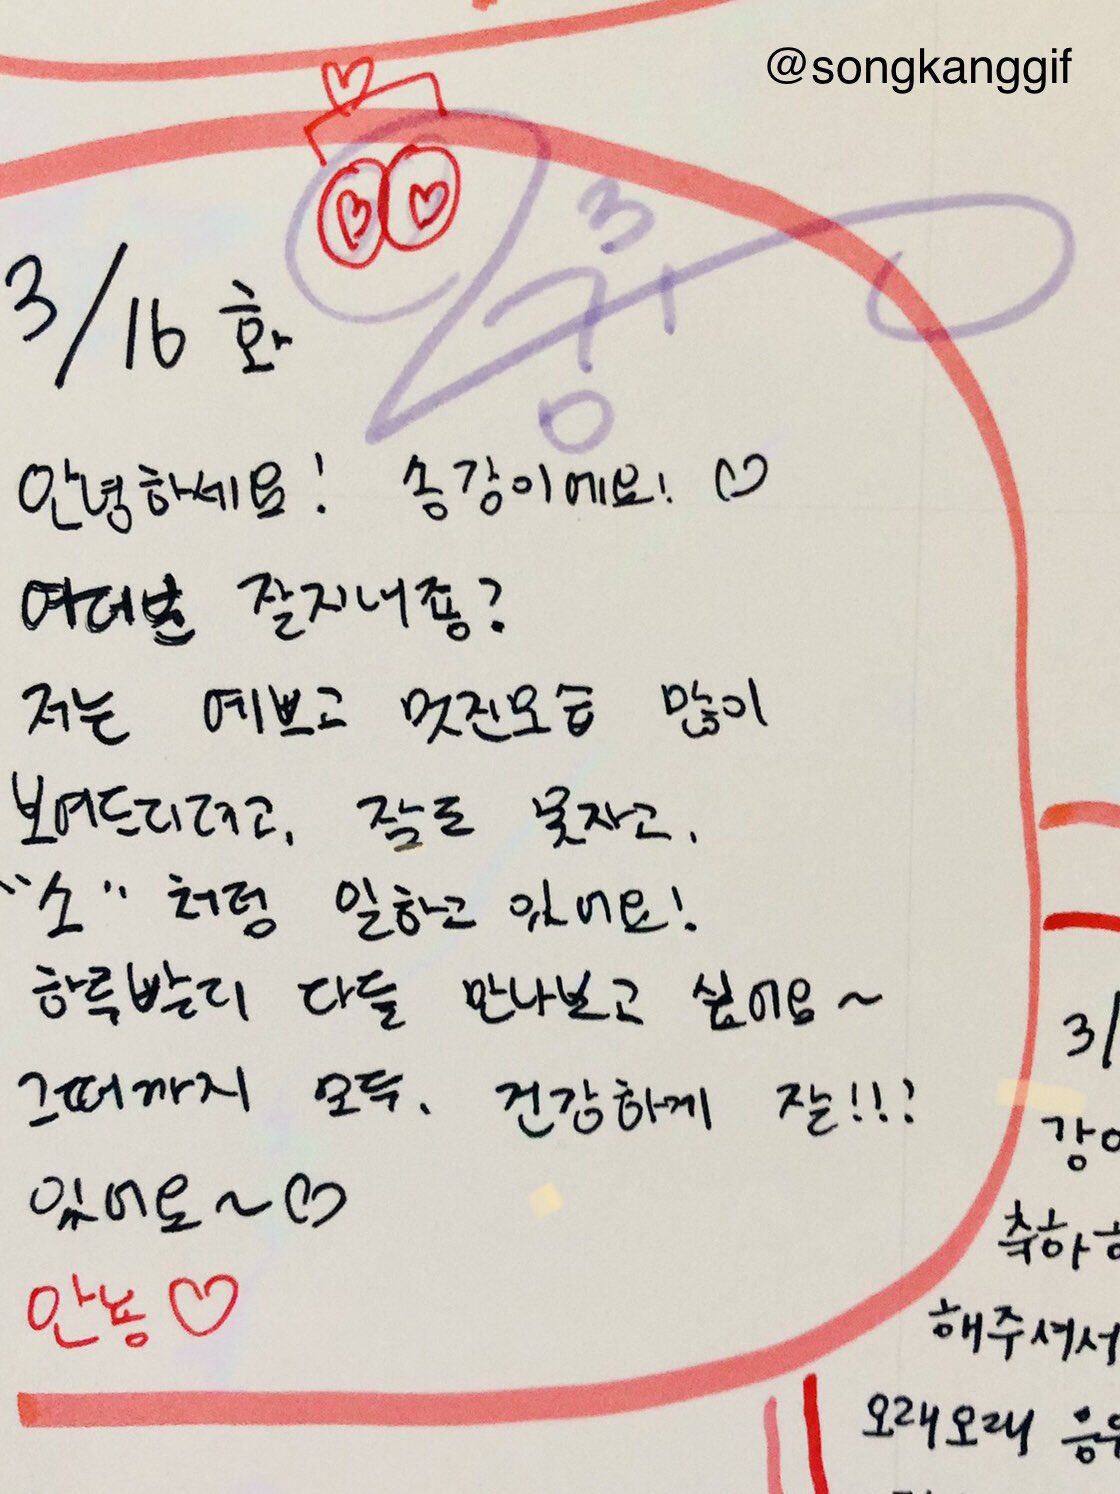 @songkanggif
3/16 화
안녕하세요! 송강이에요! ♡
여러분 잘지내죵?
저는 예쁘고 멋진모습 많이
보여드리려고, 잠도 못자고,
"소" 처럼 일하고 있어요!
하루빨리 다들 만나보고 싶어요~
그때까지 모두, 건강하게 잘!!!
있어요~♡
안뇽♡
3/
강이
축하하
해주셔서
오래오래 응원